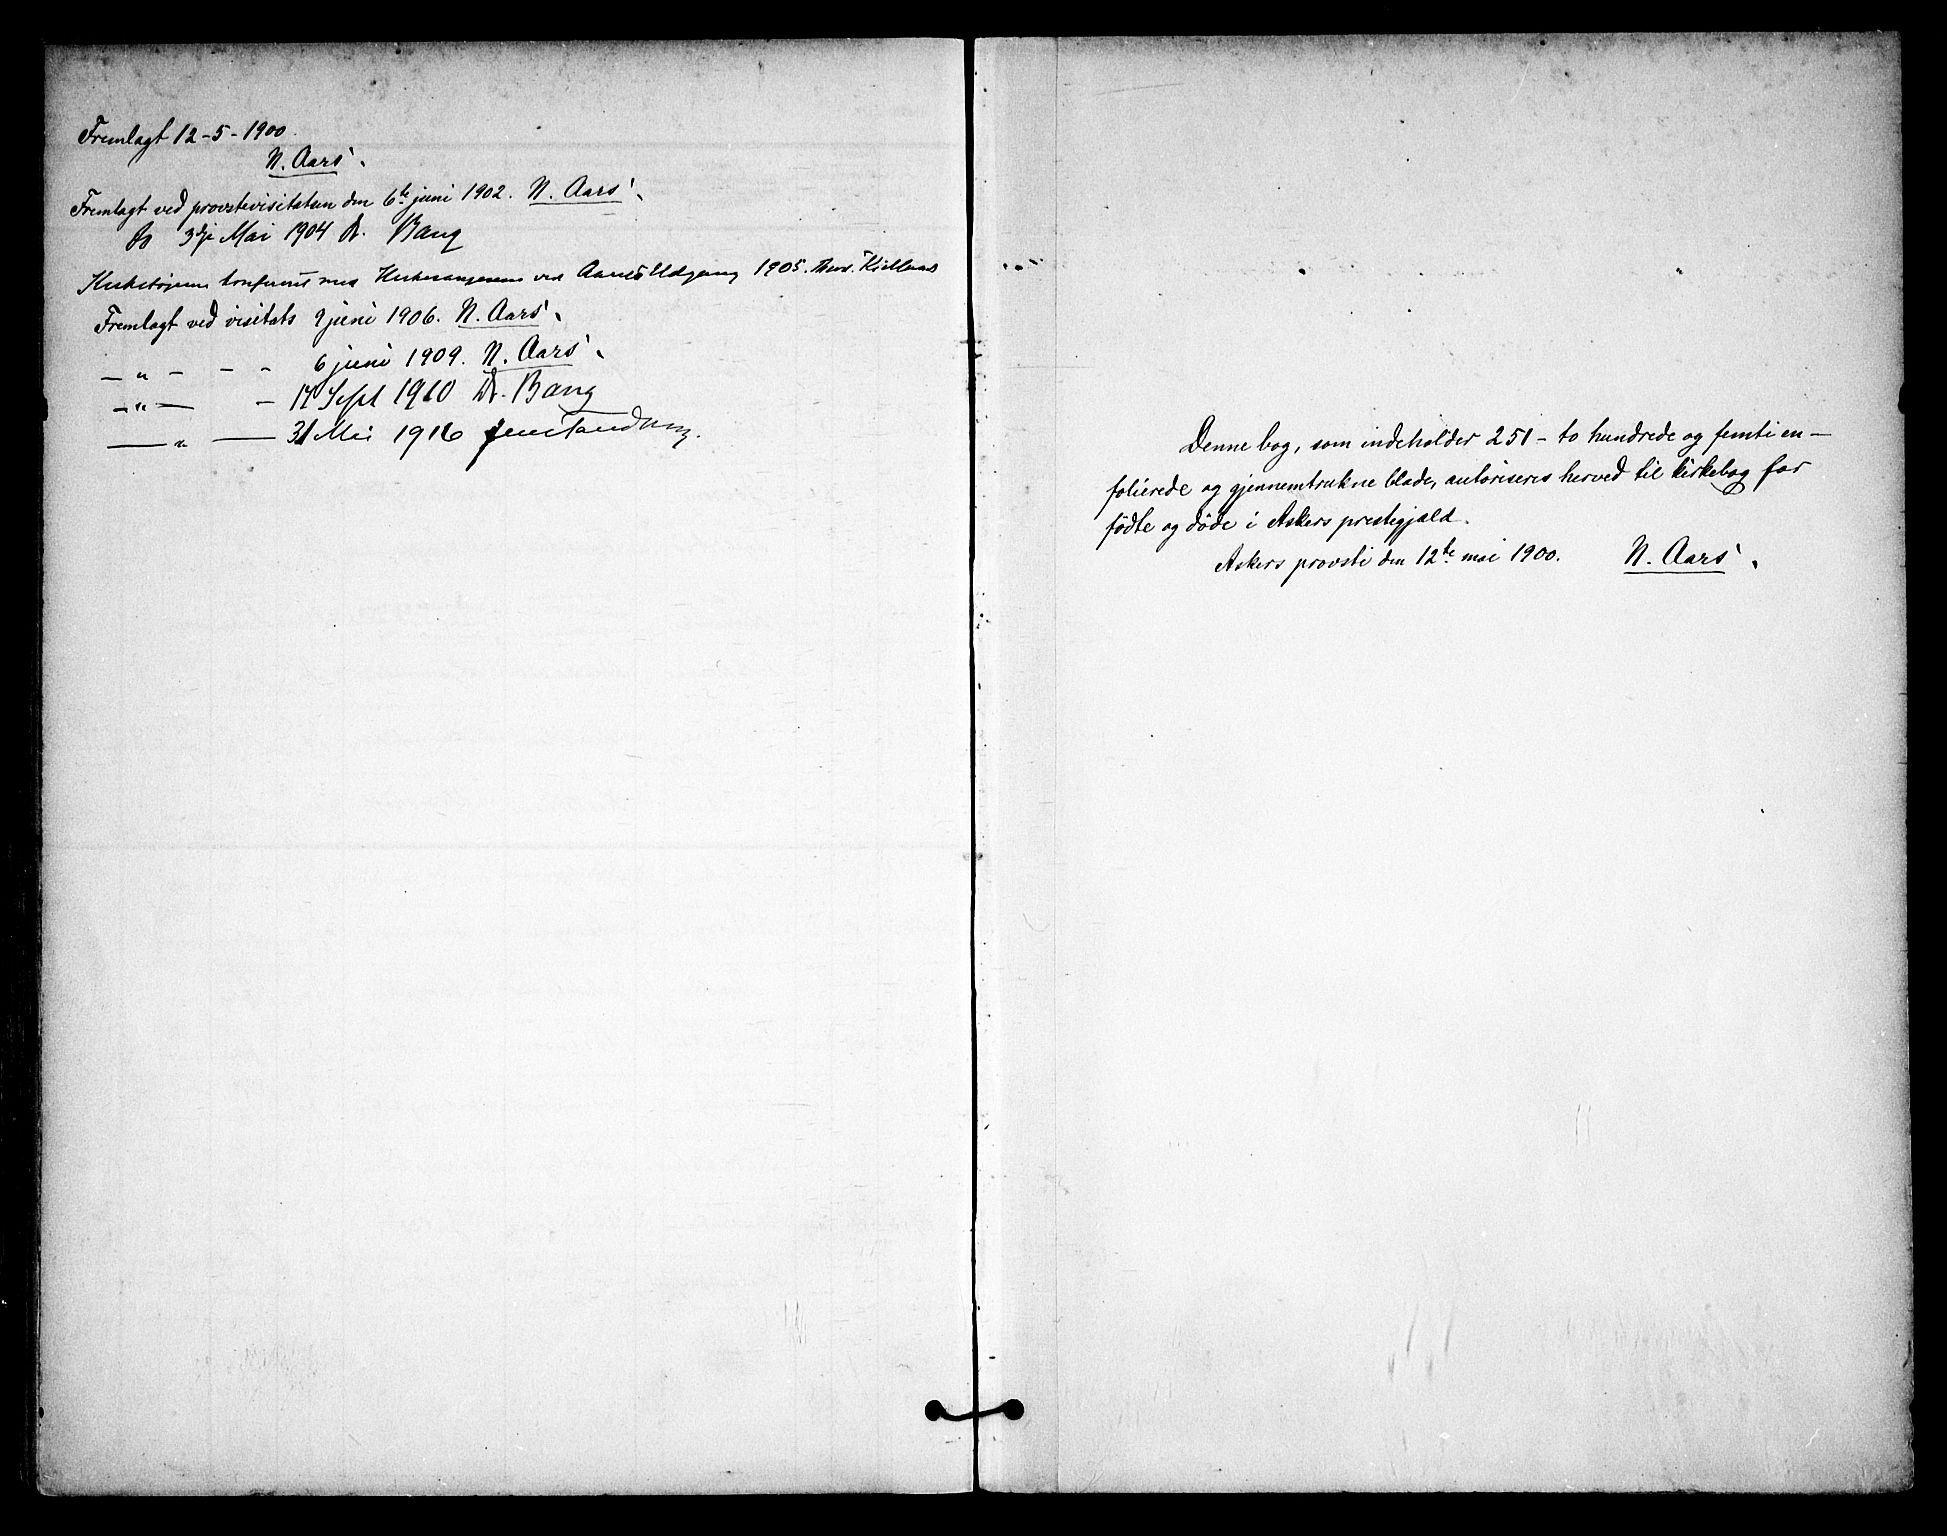 Fremlagt 12-5-1900.
N. Aars.
Fremlagt ved provstevisitatsen den 6te juni 1902. N. Aars.
Do 3dje Mai 1904 Dr. Bang
ved Aarets Udgang 1905. Kielland
Fremlagt ved visitats 9 juni 1906. N. Aars.
— " — — — 6 juni 1909. N. Aars.
— " — — 17 Sept 1910 Dr. Bang
— " — 31 Mai 1916 Jens Tandberg.
Denne bog, som indeholder 251 – to hundrede og femti en –
folierede og gjennemtrukne blade, autoriseres herved til kirkebog for
fødte og døde i Askers prestegjæld.
Askers provsti den 12te mai 1900. N. Aars.